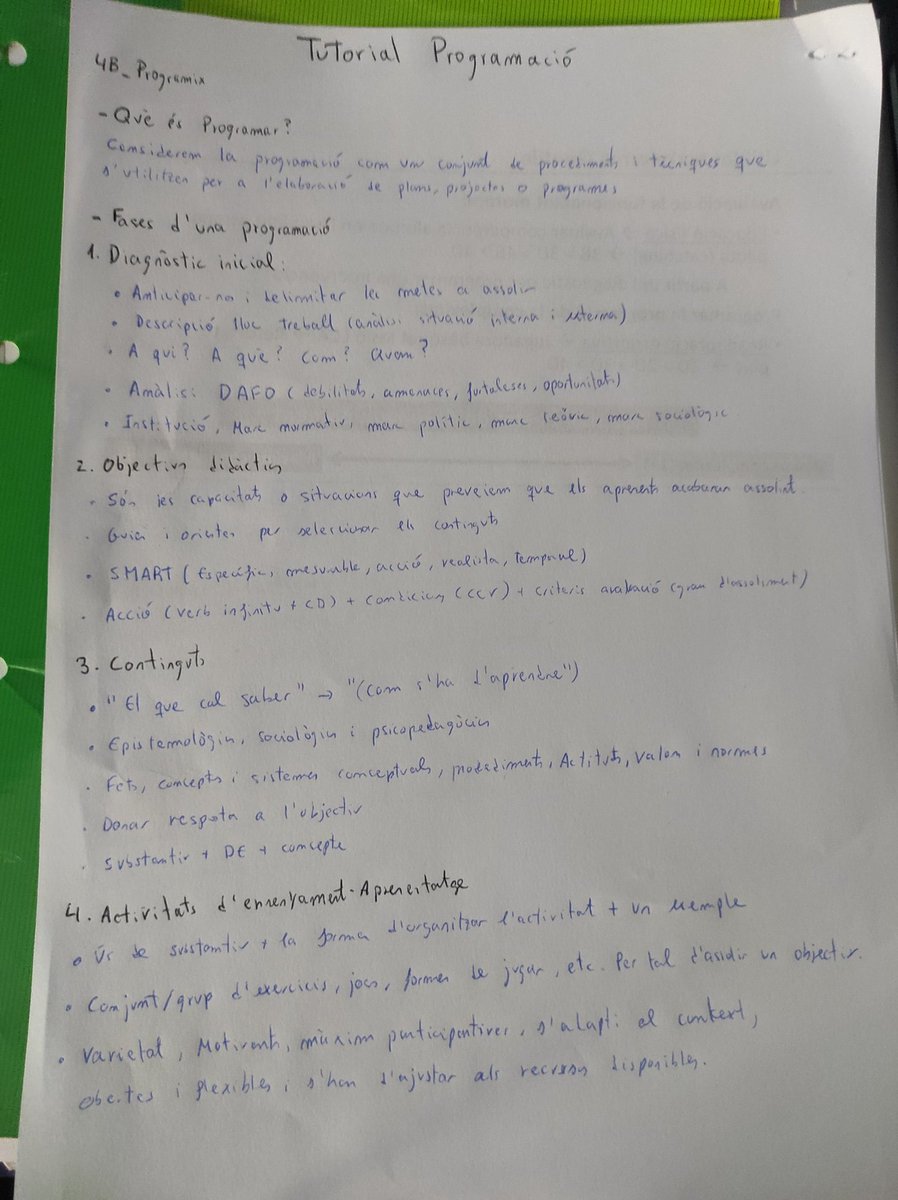 Tutorial Programació
4B_Programix
- Què és Programar?
Considerem la programació com un conjunt de procediments i tècniques que
s'utilitzen per a l'elaboració de plans, projectes o programes
- Fases d'una programació
1. Diagnòstic inicial:
• Anticipar-nos i delimitar les metes a assolir
• Descripció lloc treball (anàlisi situació interna i externa)
• A qui? A què? Com? Quan?
• Anàlisi DAFO (debilitats, amenaces, fortaleses, oportunitats)
• Institució, Marc normatiu, marc polític, marc teòric, marc sociològic
2. Objectius didàctics
• Són les capacitats o situacions que preveiem que els aprenents acabaran assolint.
• Guien i orienten per seleccionar els continguts
• SMART (Específic, mesurable, acció, realista, temporal)
• Acció (verb infinitiu + CD) + Condicions (CCV) + criteris avaluació (grau d'assoliment)
3. Continguts
• "El que cal saber" → "(com s'ha d'aprendre")
• Epistemològics, sociològics i psicopedagògics
• Fets, conceptes i sistemes conceptuals, procediments, Actituts, valors i normes
• Donar resposta a l'objectiu
• Substantiu + DE + concepte
4. Activitats d'ensenyament-Aprenentatge
• Ús de substantiu + la forma d'organitzar l'activitat + un exemple
• Conjunt/grup d'exercicis, jocs, formes de jugar, etc. Per tal d'assolir un objectiu.
• Varietat, Motivents, màxim participatives, s'adapti al context,
obertes i flexibles i s'han d'ajustar als recursos disponibles.